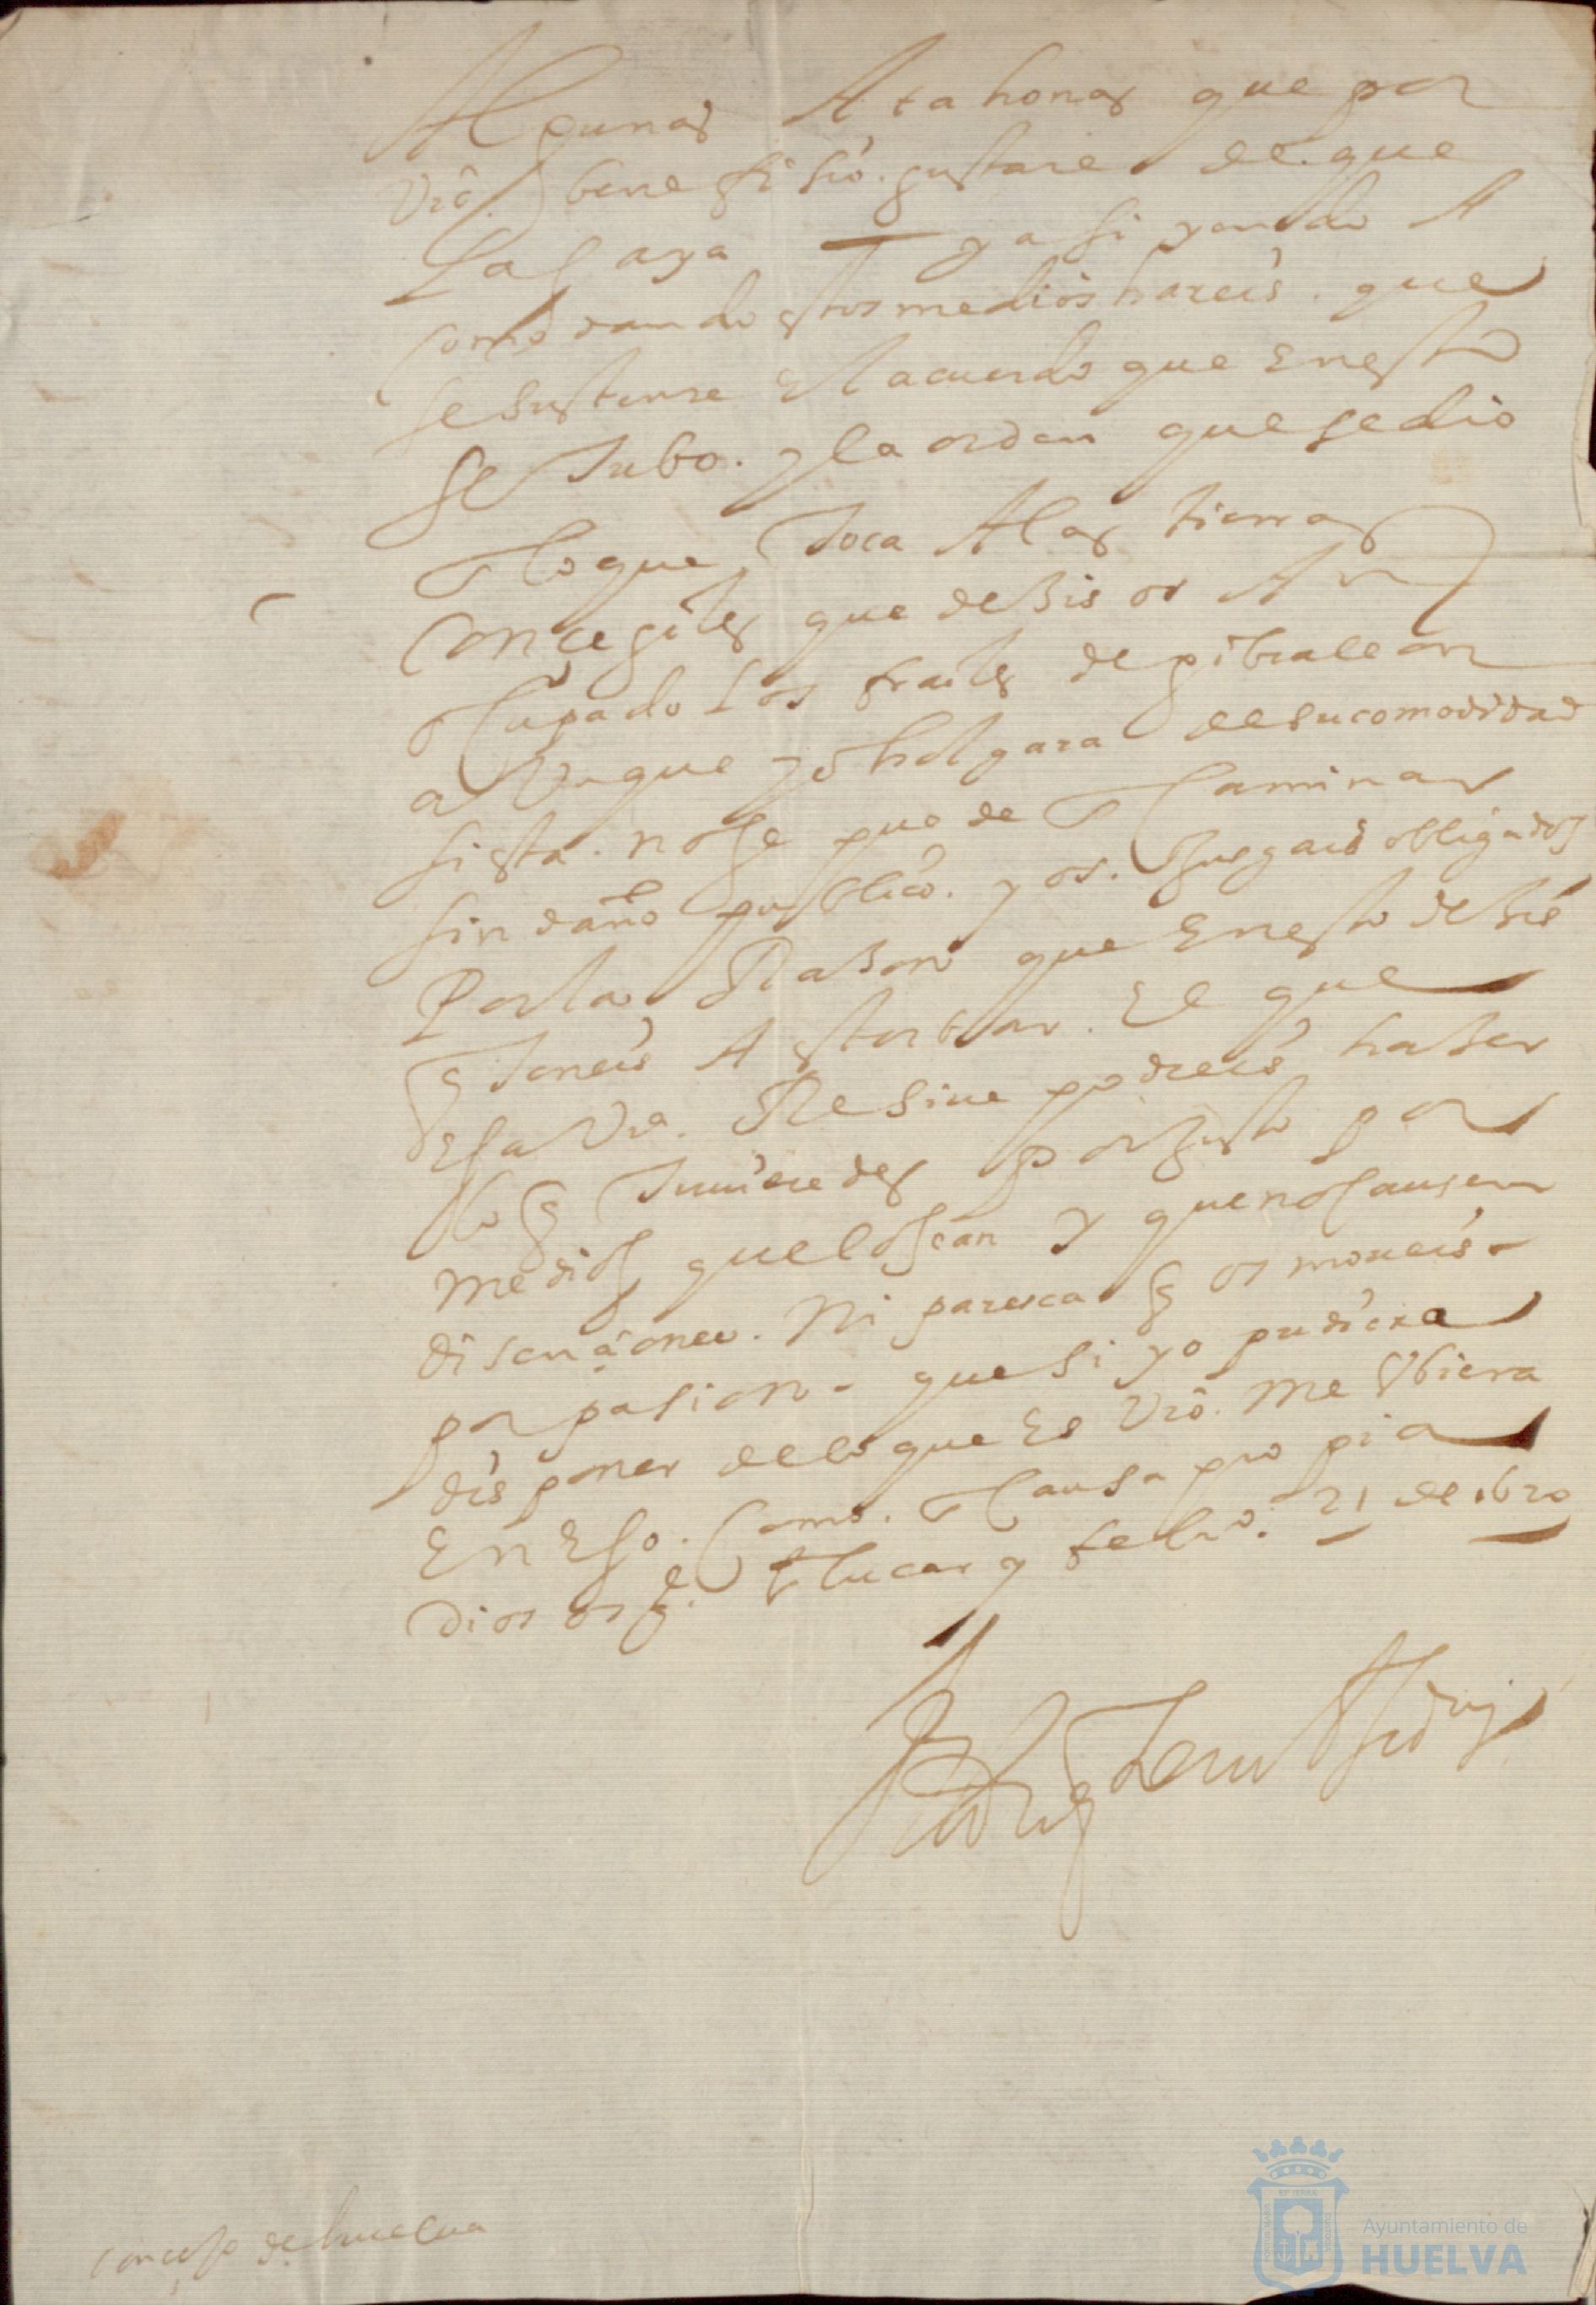 Algunas Atahonas que por
Vrô. benefisio. gustare de que
las aya — y asi yendo A
comodando estos medios hareis. que
se sustente El acuerdo que En esto
se Tubo. y la orden que se dio
lo que Toca A las tierras
concegiles que desis os An
Cupado los frailes de gibraleon
aVnque yo holgara de su comodidad
si esta. no se puede Caminar
sin daño publico. y os. Jusgais obligados
Por la Rason que En esto desis
q Teneis A estorbar. El que
Esa Vra. Resiue podreis haser
lo q Tuuieredes por Justo por
medios que lo sean y que no causen
disenciones. Ni paresca q os moueis
por pasion - que si yo pudiera
disponer de lo que Es Vrô. me Vbiera
En Eso. Como. Causa propia
Dios os ge. Slucar y febro. 21 de 1620
concejo de huelua
Ayuntamiento de
HUELVA